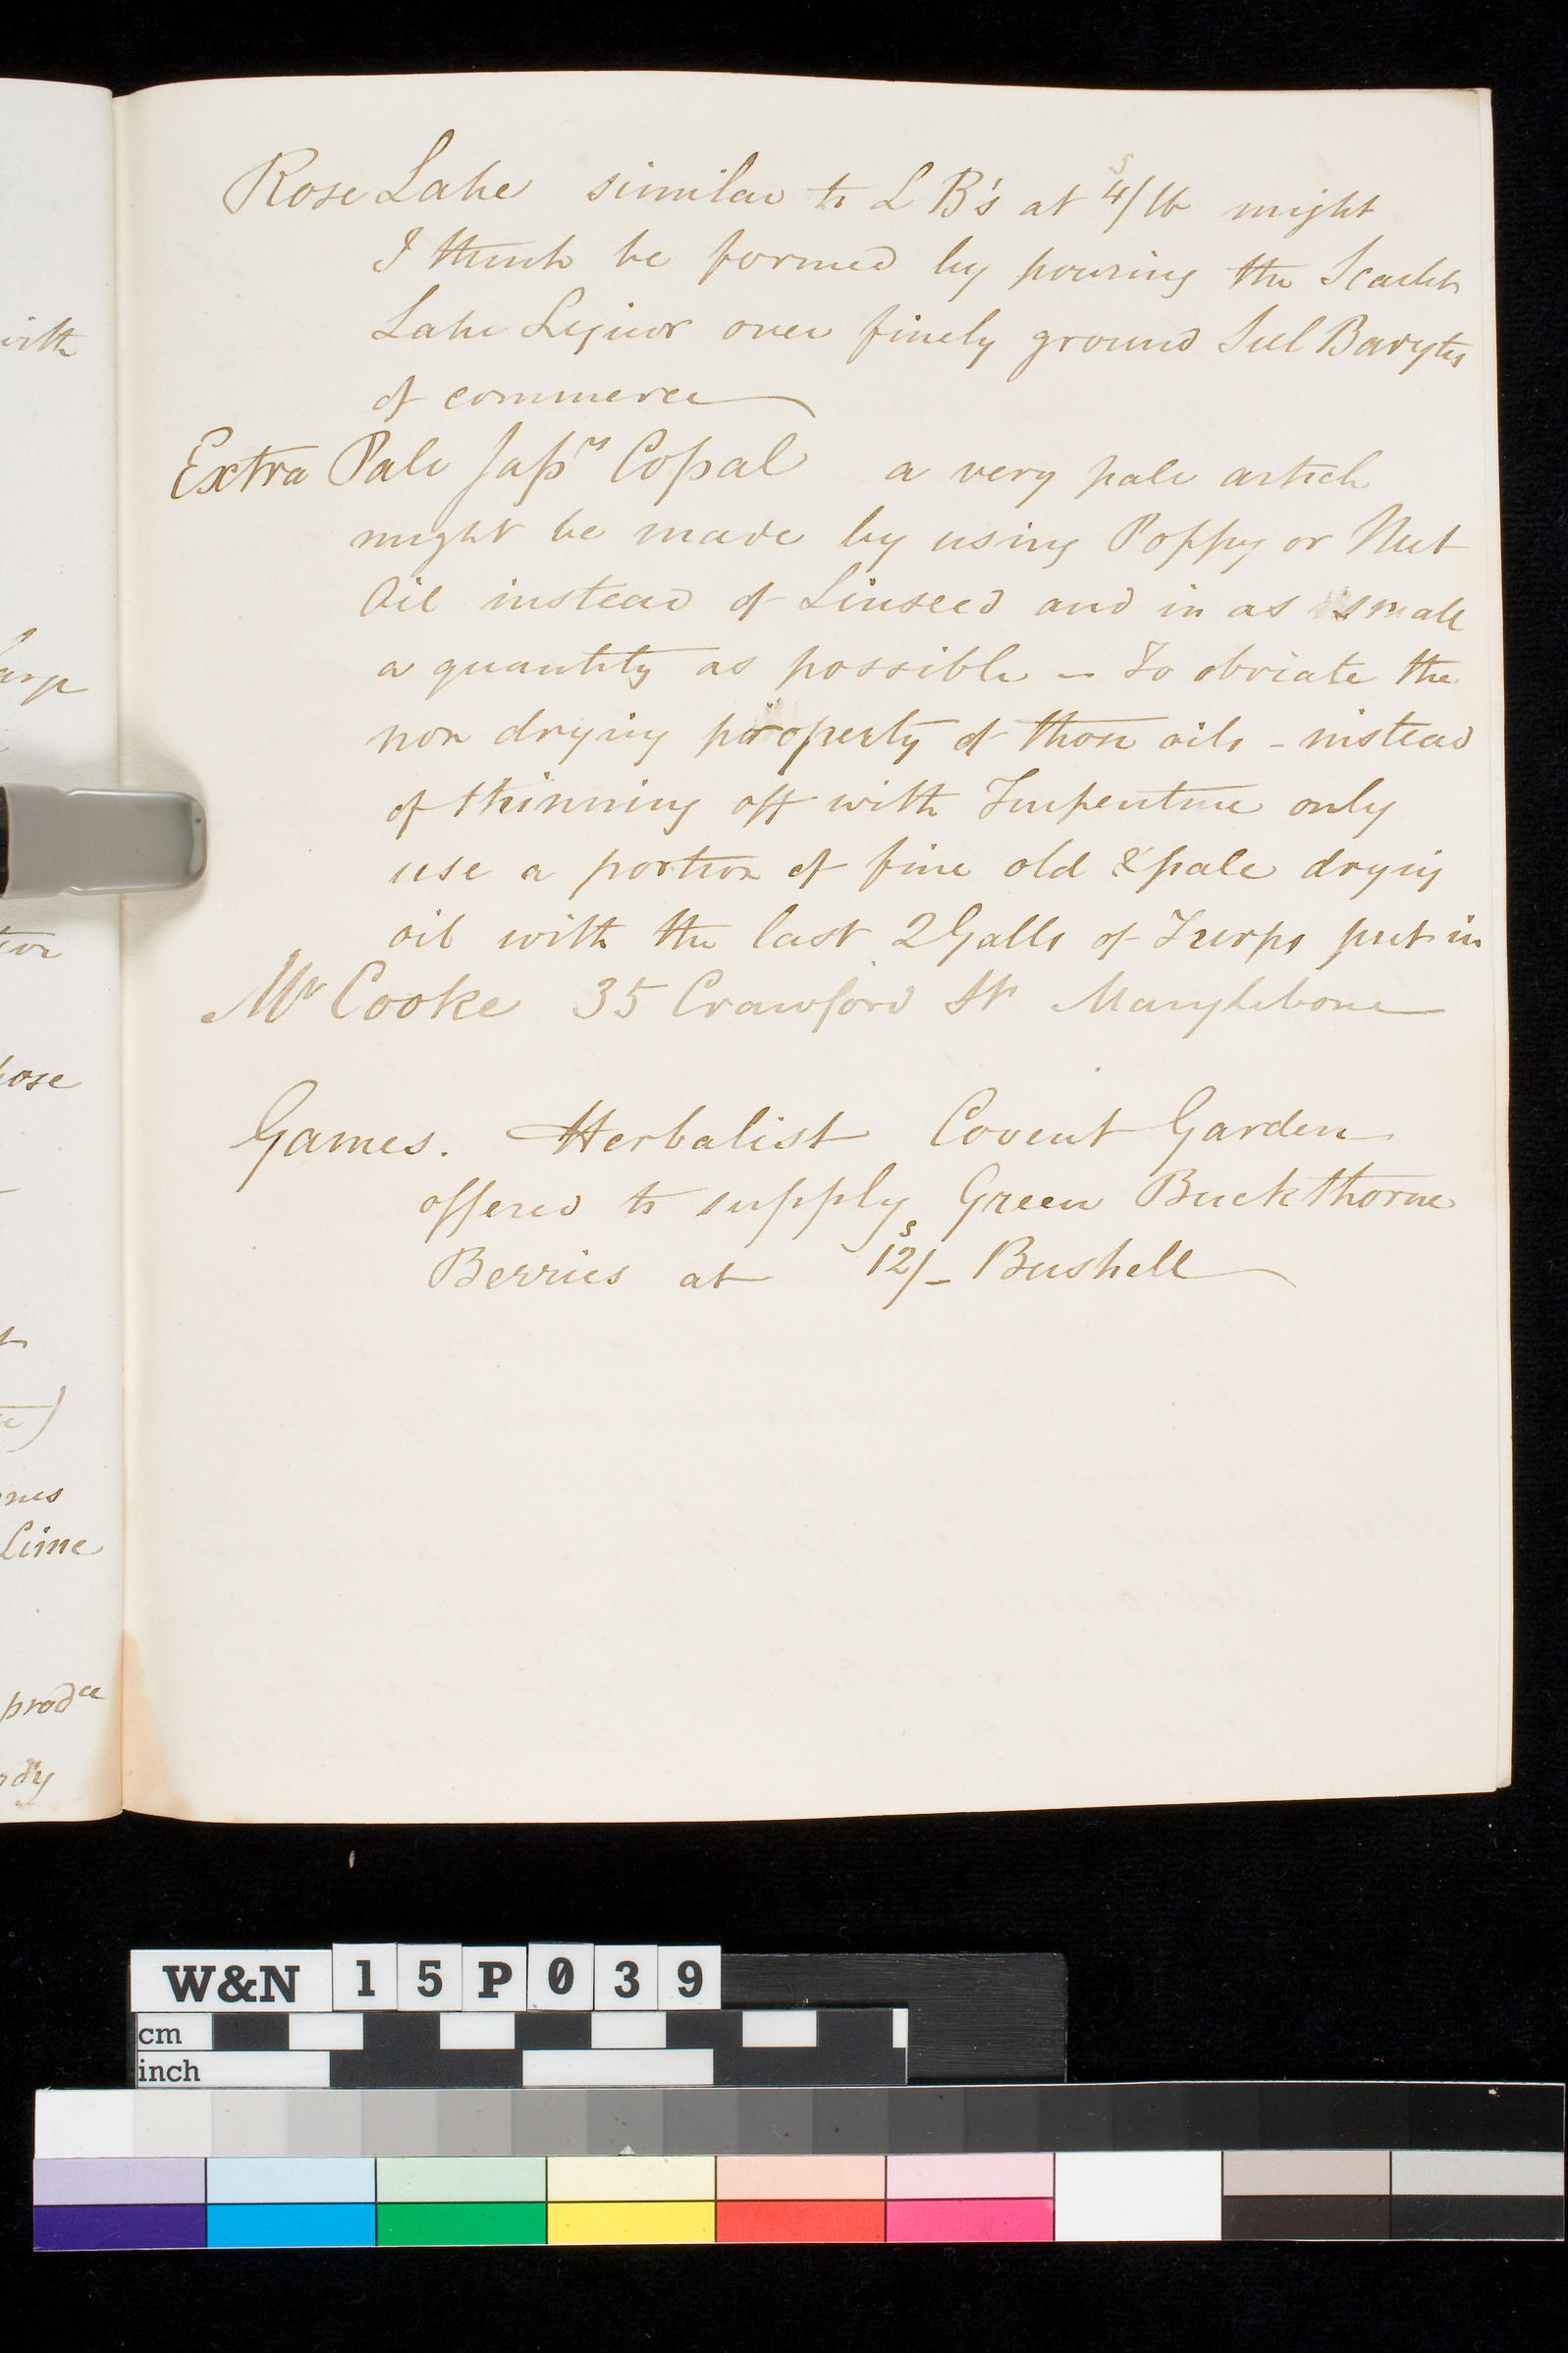 Rose Lake similar to L B's at 4s/lb might
I think be formed by pouring the Scarlet
Lake Liquor over finely ground Sul Barytes
of commerce
Extra Pale Japrs Copal a very pale article
might be made by using Poppy or Nut
Oil instead of Linseed and in as small
a quantity as possible – To obviate the
non drying property of those oils – instead
of thinning off with Turpentine only
use a portion of fine old & pale drying
oil with the last 2 Galls of Turps put in
Mr Cooke 35 Crawford St Marylebone
Games. Herbalist Covent Garden
offered to supply Green Buckthorne
Berries at 12s/– Bushell
with
large
tion
hose
t
)
nes
Lime
prodce
ody
W&N 15P039
cm
inch